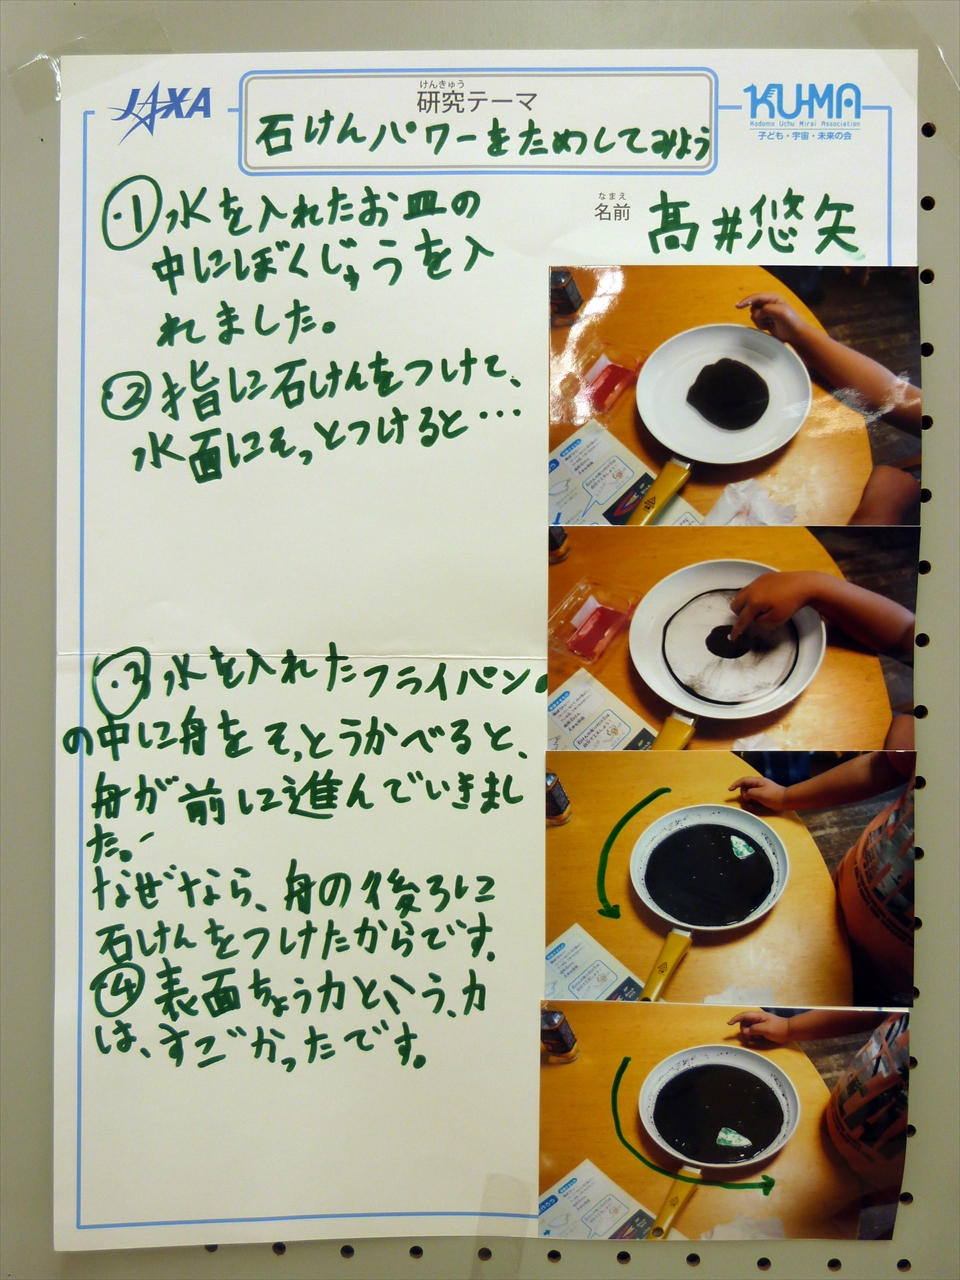 JAXA
けんきゅう
研究テーマ
石けんパワーをためしてみよう
KU-MA
Kodomo Uchu Mirai Association
子ども・宇宙・未来の会
なまえ
名前
高井悠矢
①水を入れたお皿の
中にぼくじゅうを入
れました。
②指に石けんをつけて、
水面にそっとつけると…
③水を入れたフライパン
の中に舟をそっとうかべると、
舟が前に進んでいきまし
た。
なぜなら、舟の後ろに
石けんをつけたからです。
④表面ちょう力という、力
は、すごかったです。